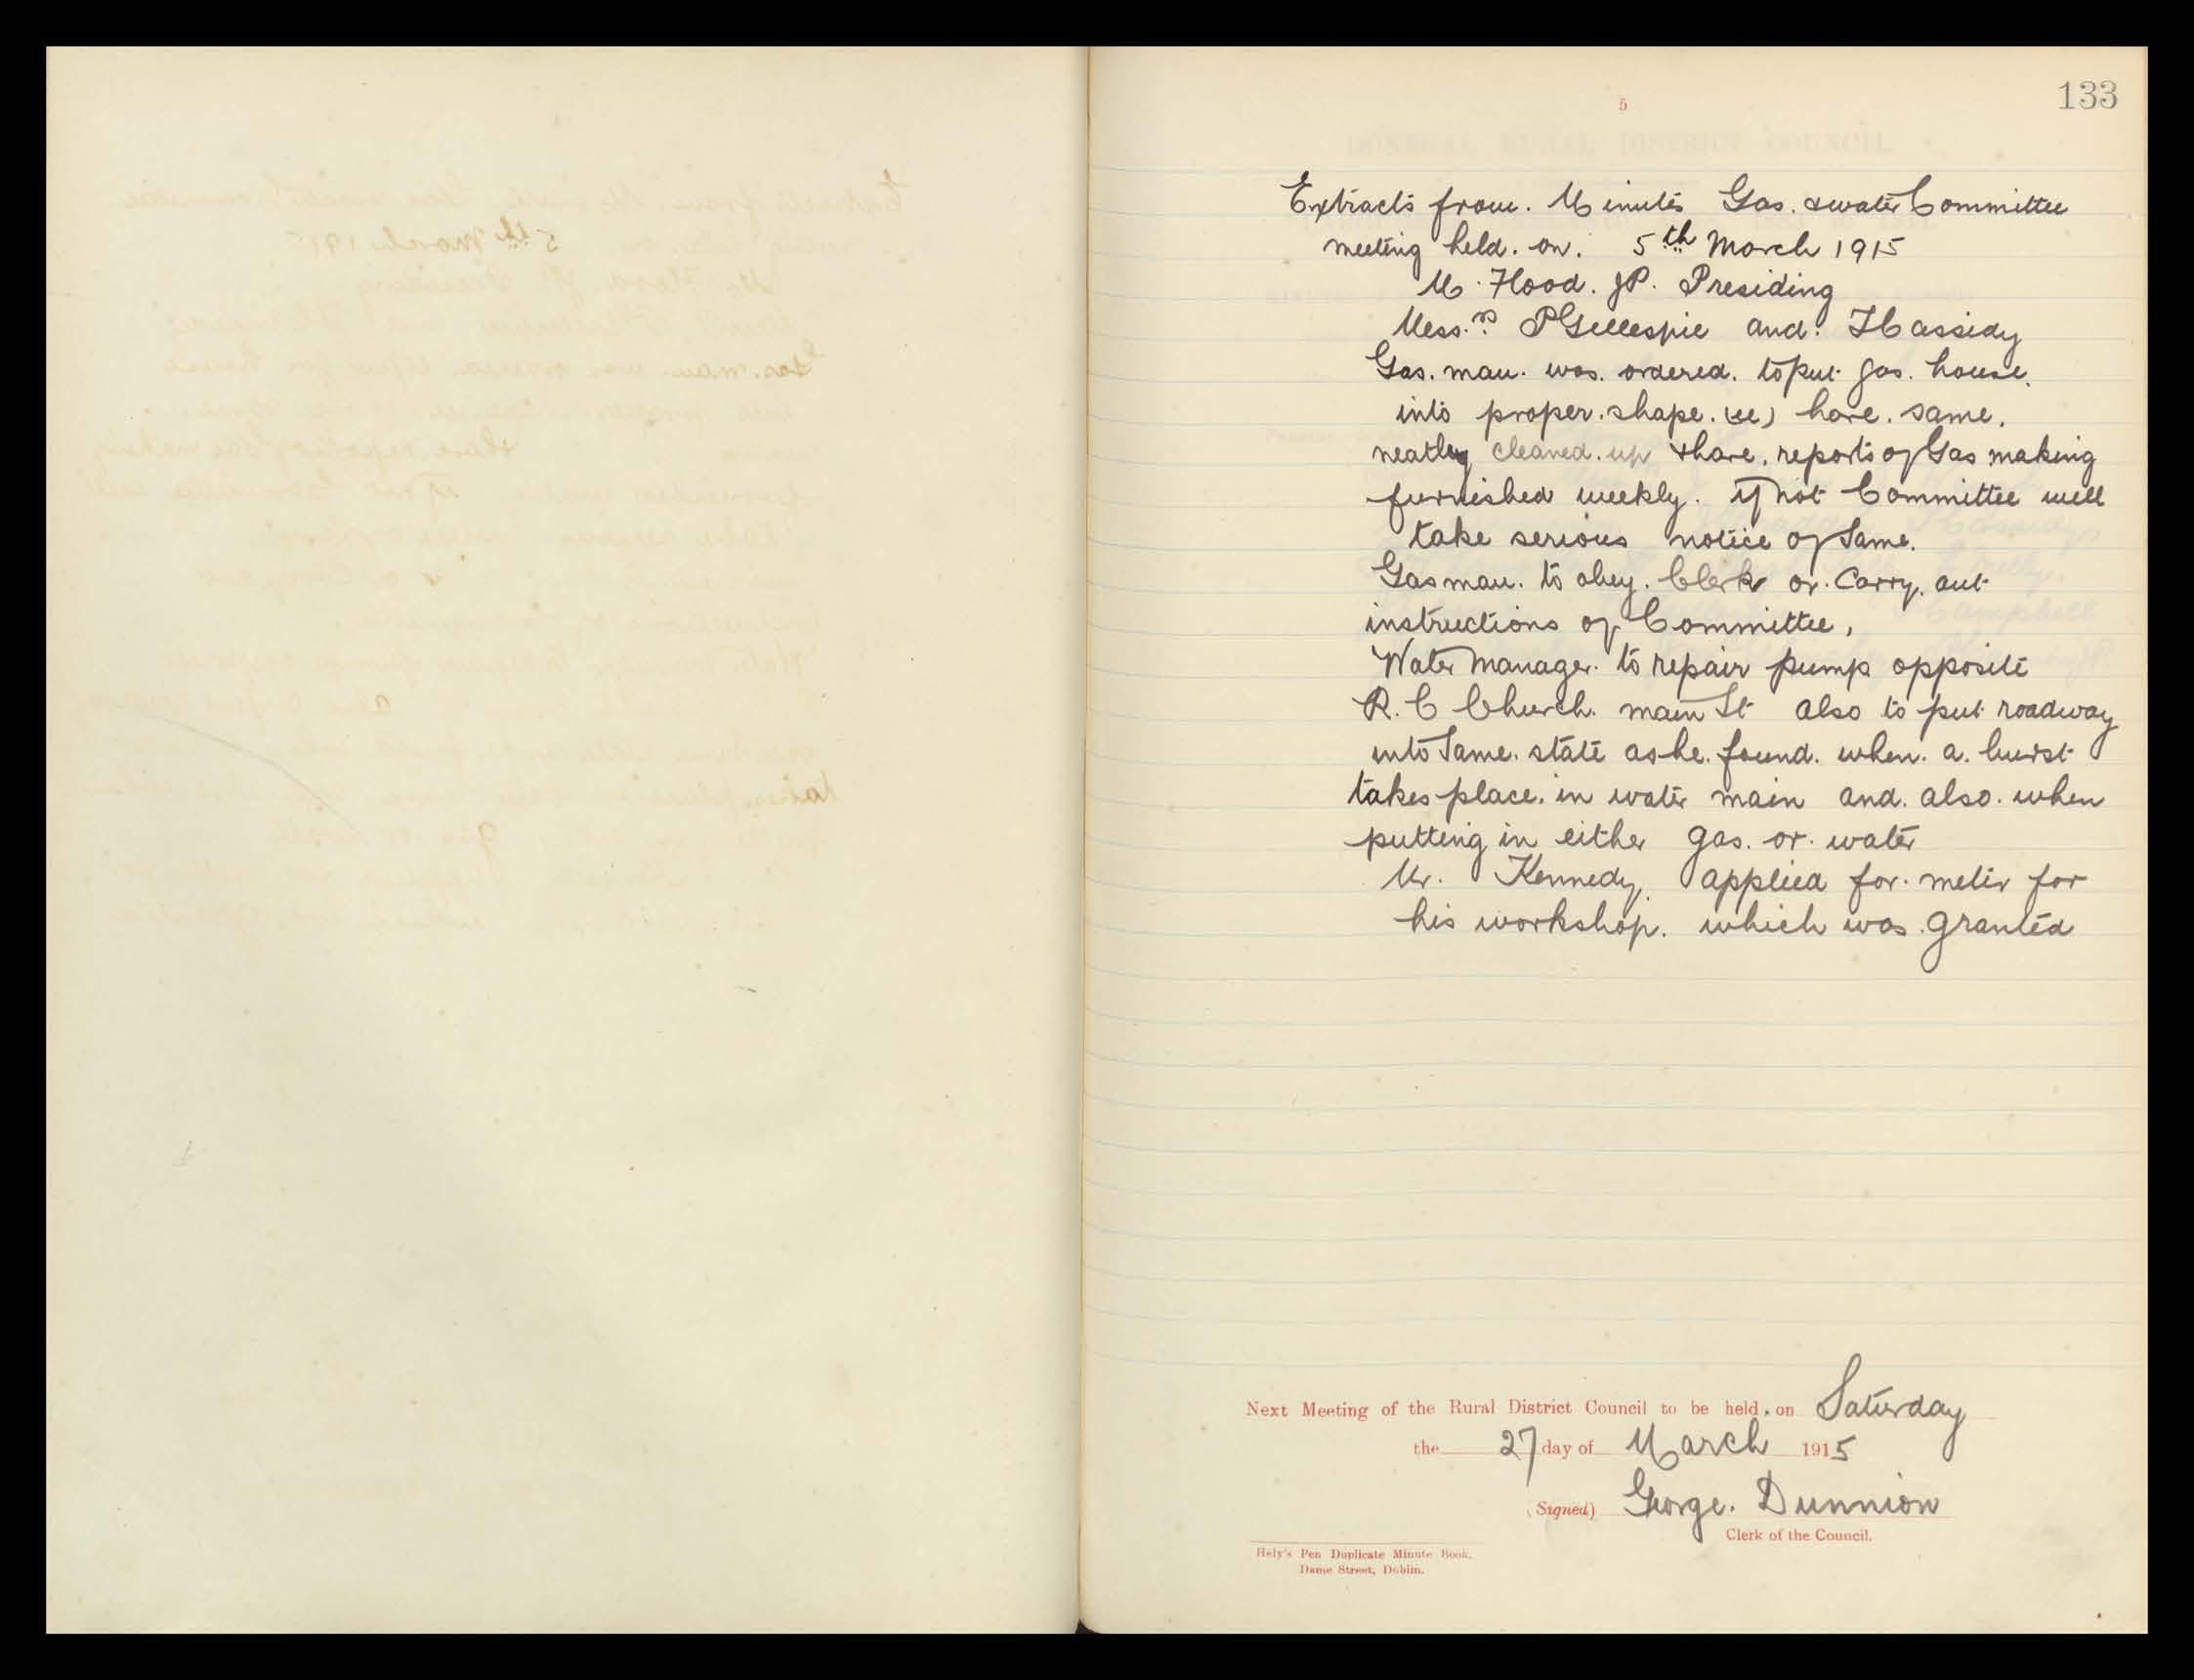 133
5
Extracts from. Minutes Gas. & water Committee
meeting held. on. 5th March 1915
M. Flood. JP. Presiding
Mess.rs P Gillespie and. F Cassidy
Gas. man. was. ordered. to put gas. house.
into proper. shape. (ie) have. same.
neatley cleaned. up & have. reports of Gas making
furnished weekly. if not Committee will
take serious notice of Same.
Gas man. to obey. Clerk or. Carry. out
instructions of Committee,
Water Manager. to repair pump opposite
R. C Church. main St also to put roadway
into Same. state as he. found. when. a. burst
takes place. in water main and. also. when
putting in either gas. or. water
Mr. Kennedy. applied for. meter for
his workshop. which was. granted
Next Meeting of the Rural District Council to be held on Saturday
the 27 day of March 1915
(Signed) George. Dunnion
Clerk of the Council.
Hely's Pen Duplicate Minute Book.
Dame Street, Dublin.